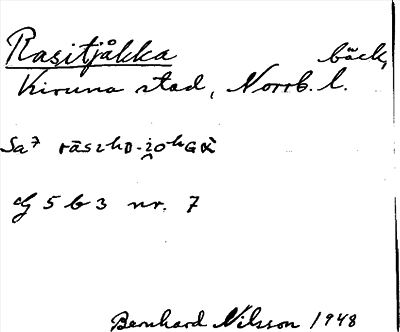 Rasitjåkka bäck,
Kiruna stad, Norrb. l.
Sa⁷
5 b 3 nr. 7
Bernhard Nilsson 1948